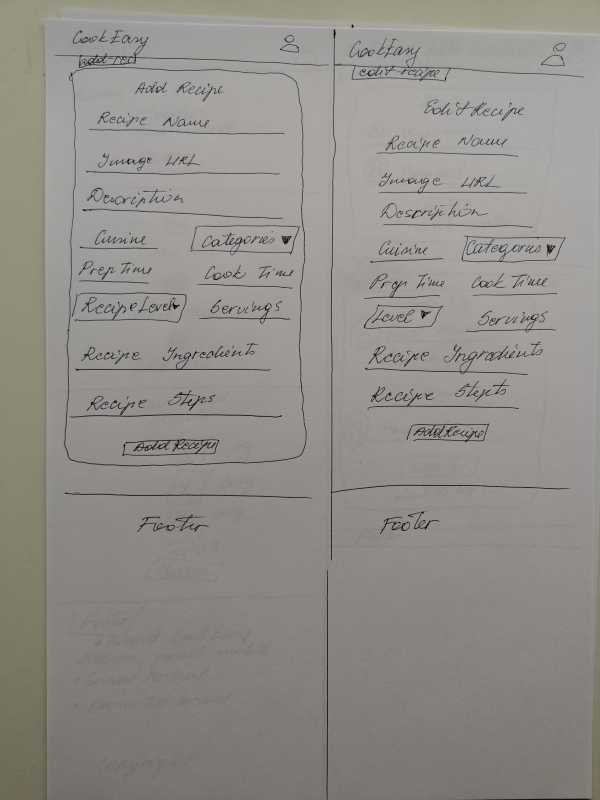 CookEasy
add-rec
Add Recipe
Recipe Name
Image URL
Description
Cuisine Categories
Prep Time Cook Time
Recipe Level Servings
Recipe Ingredients
Recipe Steps
Add Recipe
Footer
CookEasy
edit-recipe
Edit Recipe
Recipe Name
Image URL
Description
Cuisine Categories
Prep Time Cook Time
Level Servings
Recipe Ingredients
Recipe Stepts
Add Recipe
Footer
Footer
Copyright